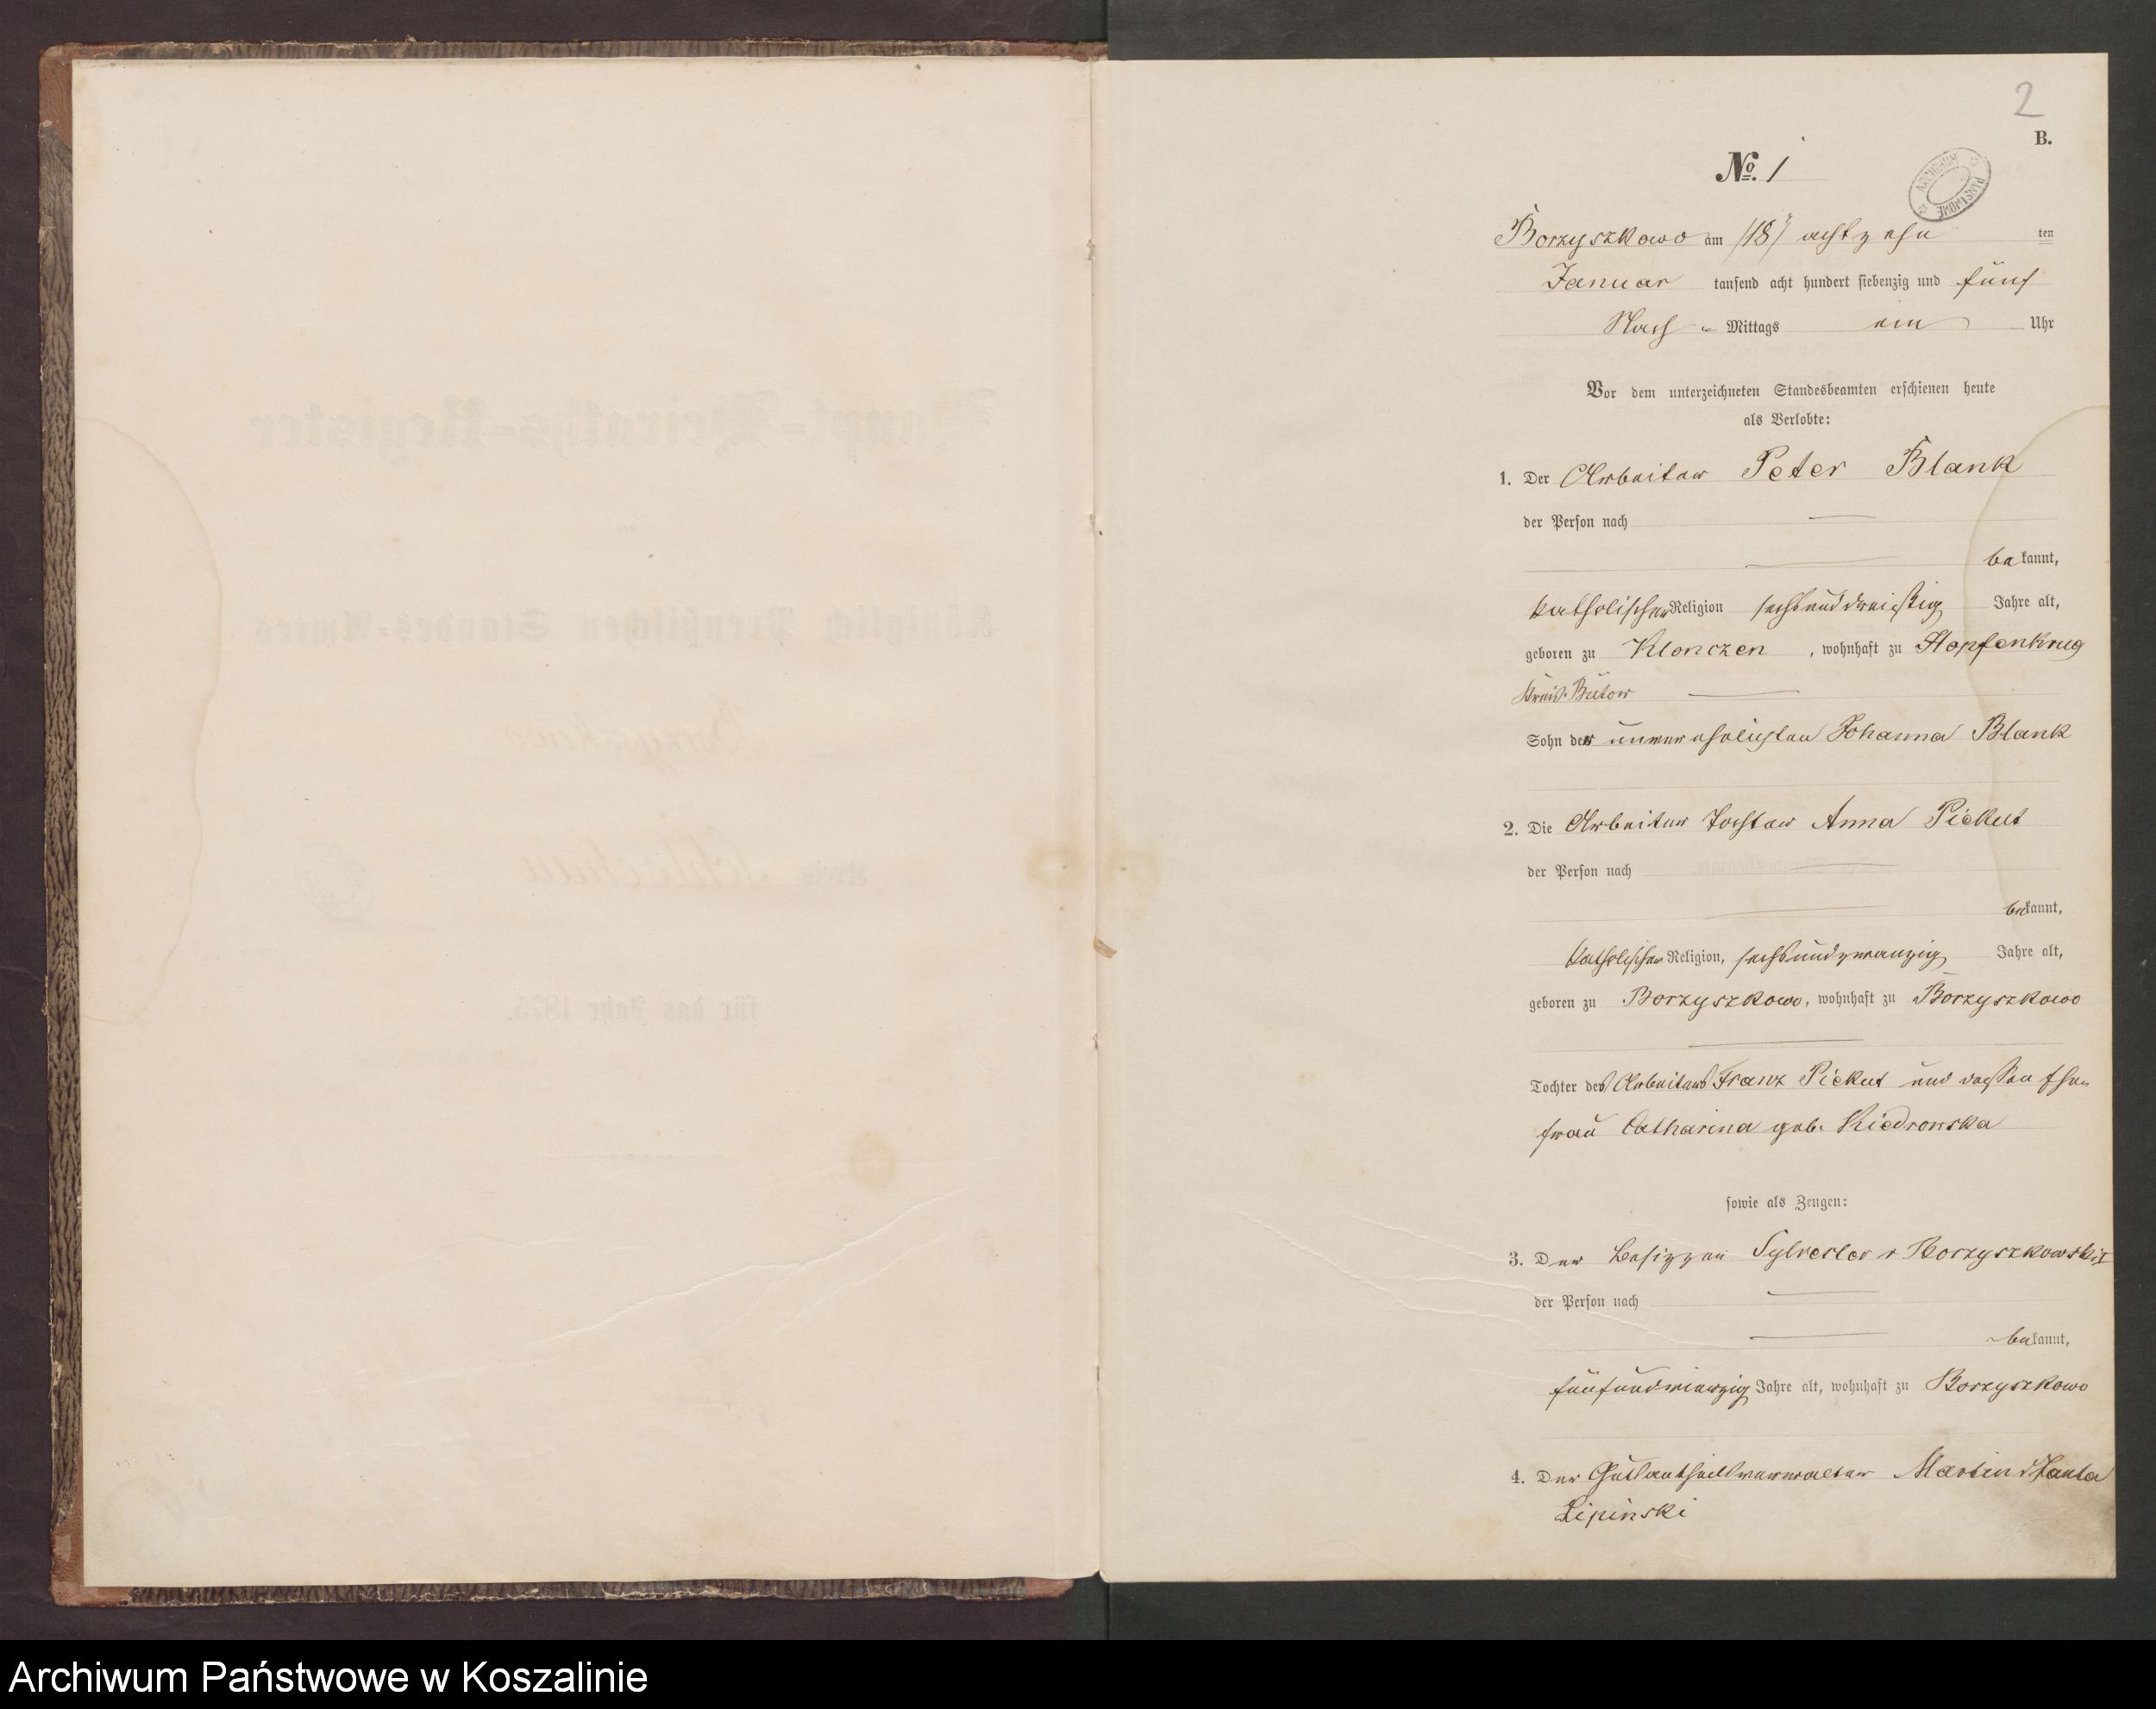 2
B.
No. 1
ARCHIWUM PAŃSTWOWE
Borzyszkowo am /18/ achtzehn ten
Januar tausend acht hundert siebenzig und fünf
Nach - Mittags ein Uhr
Vor dem unterzeichneten Standesbeamten erschienen heute
als Verlobte:
1. Der Arbeiter Peter Blank
der Person nach
bekannt,
katholischer Religion sechsunddreißig Jahre alt,
geboren zu Klonczen, wohnhaft zu Hopfenkrug
Kreis Bütow
Sohn der unverehelichten Johanna Blank
2. Die Arbeiter Tochter Anna Piekut
der Person nach
bekannt,
katholischer Religion, sechsundzwanzig Jahre alt,
geboren zu Borzyszkowo, wohnhaft zu Borzyszkowo
Tochter des Arbeiters Franz Piekut und dessen Ehe-
frau Catharina geb. Kiedrowska
sowie als Zeugen:
3. Der Besitzer Sylvester v Borzyszkowski
der Person nach
bekannt,
fünfundvierzig Jahre alt, wohnhaft zu Borzyszkowo
4. Der Gutsantheilsverwalter Martin
Lipinski
Haupt-Heiraths-Register
des
Königlich Preußischen Standes-Amtes
Borzyszkowo
Kreis Schlochau
für das Jahr 1875.
Archiwum Państwowe w Koszalinie